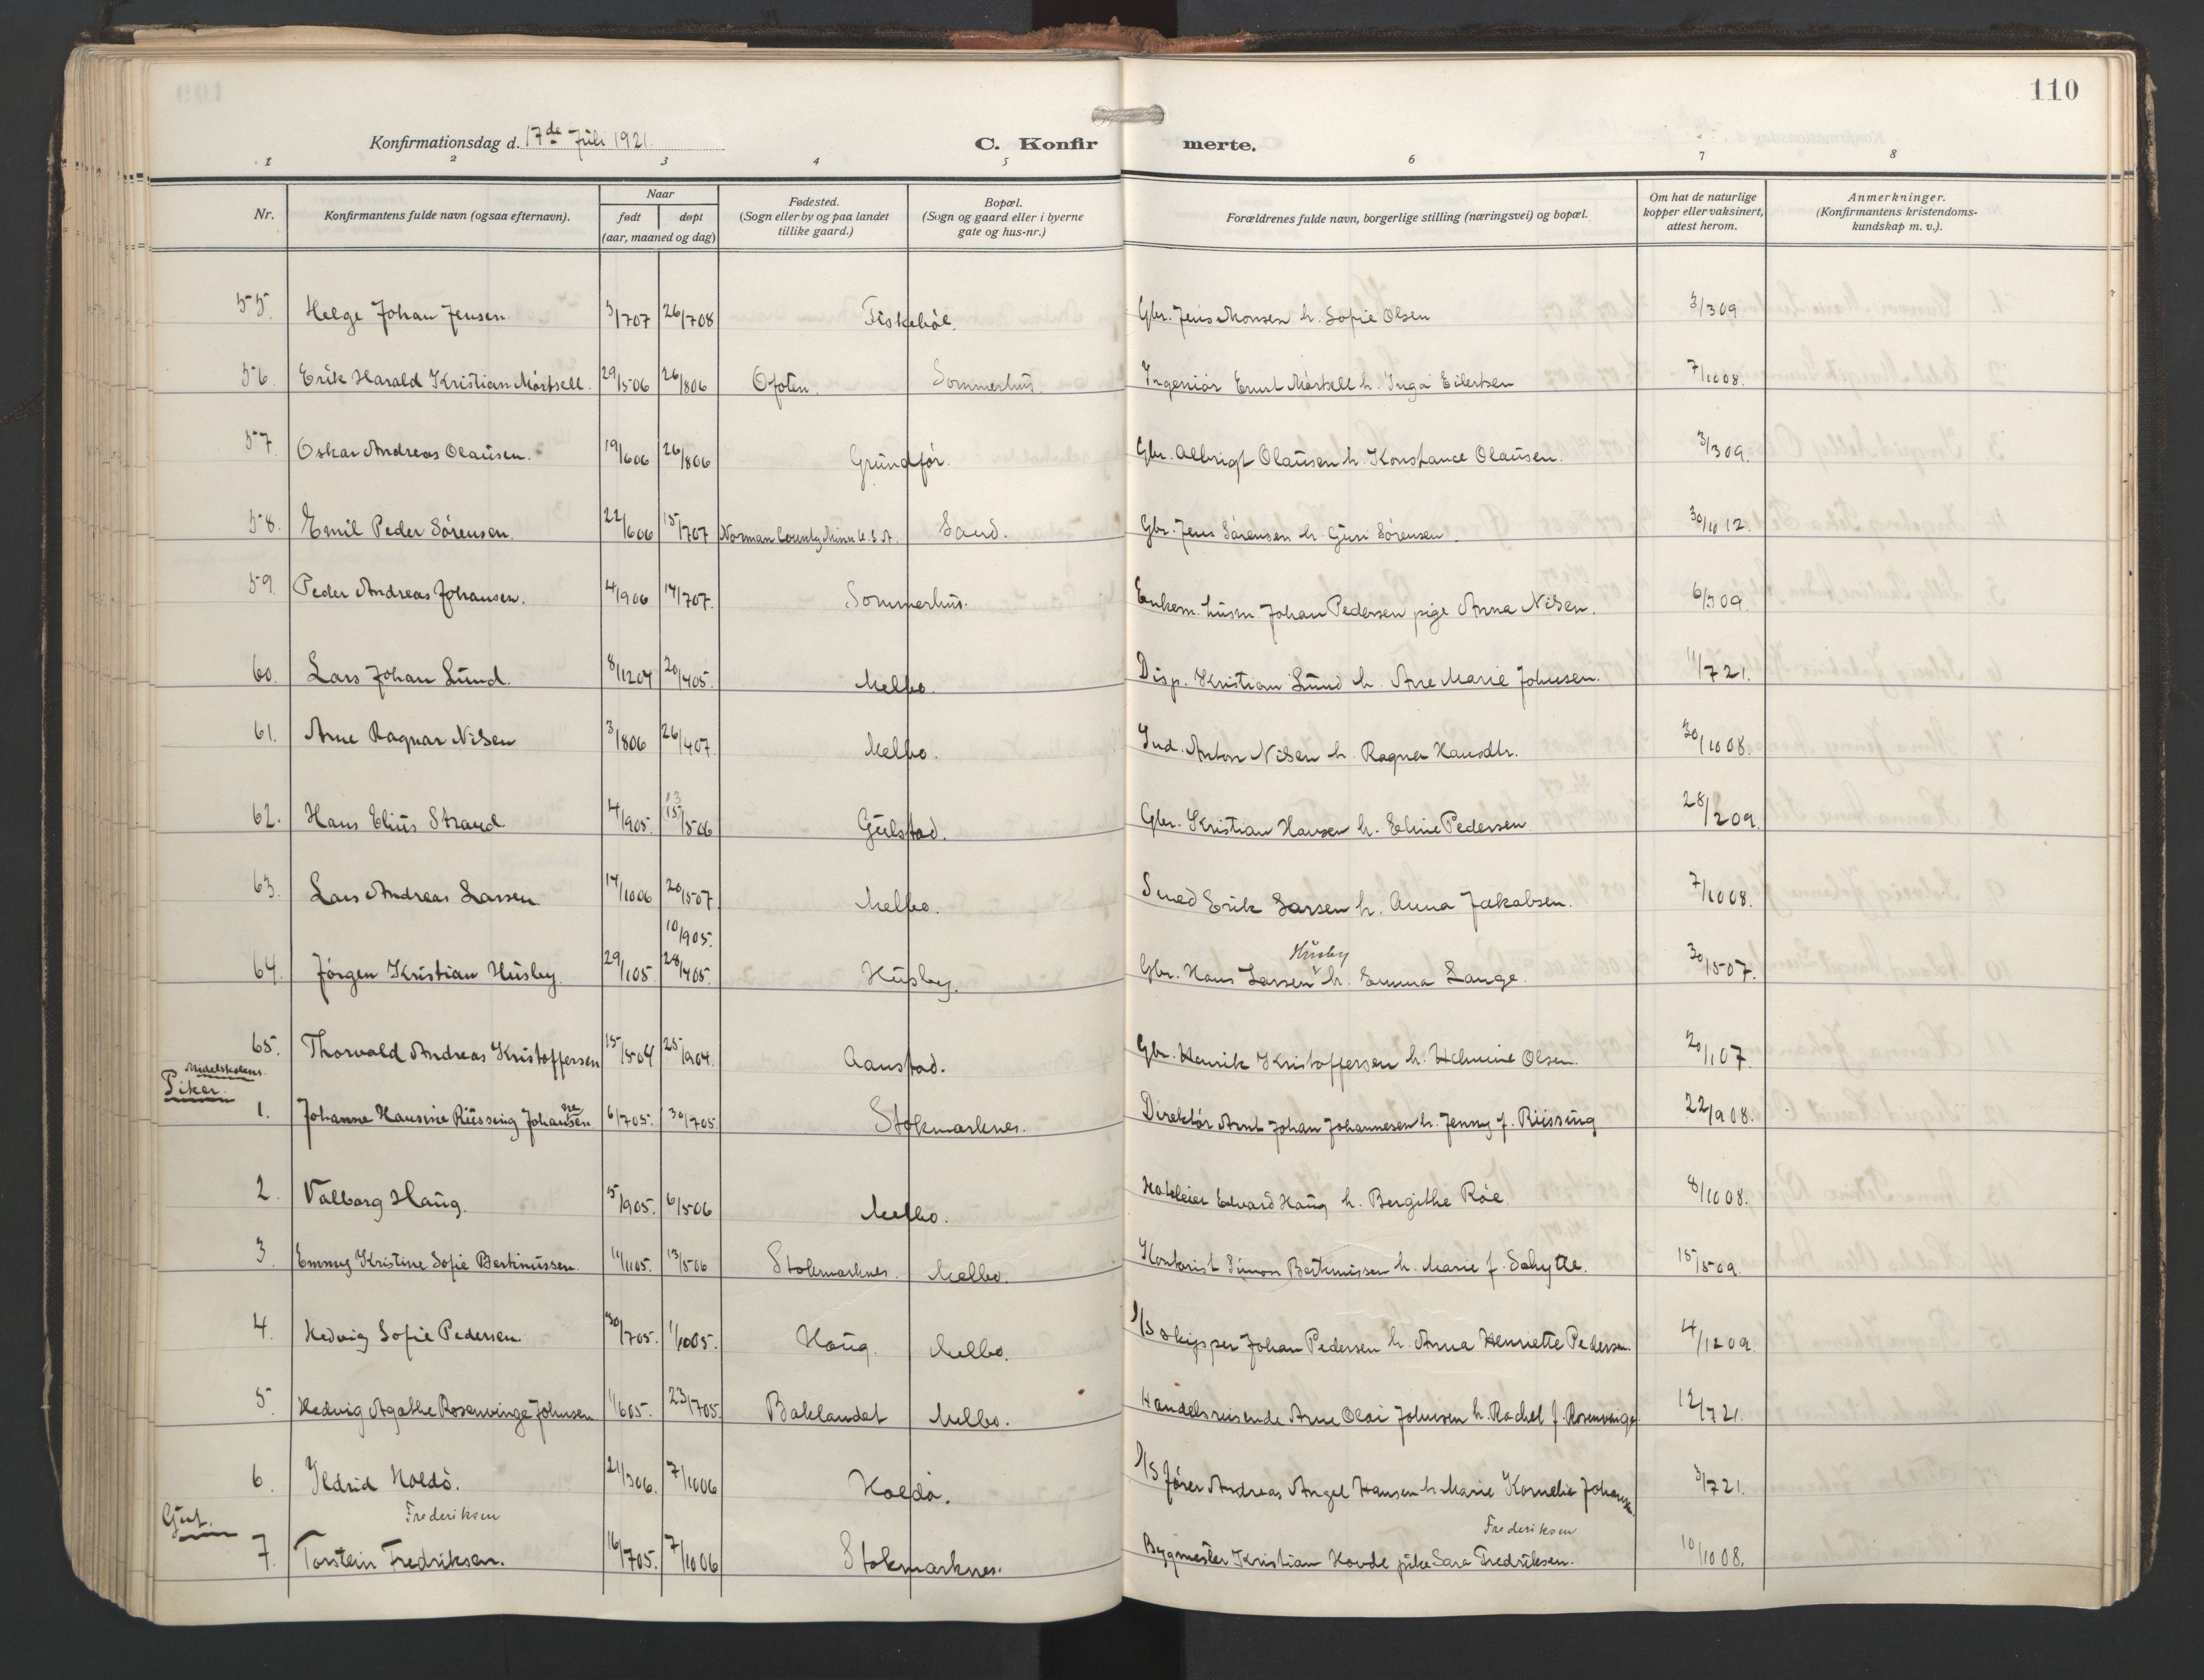 110
Konfirmationsdag d. 17de Juli 1921.
C. Konfirmerte.
1 2 3 4 5 6 7 8
Nr. Konfirmantens fulde navn (ogsaa efternavn). Naar født døpt (aar, maaned og dag) Fødested. (Sogn eller by og paa landet tillike gaard.) Bopæl. (Sogn og gaard eller i byerne gate og hus-nr.) Forældrenes fulde navn, borgerlige stilling (næringsvei) og bopæl. Om hat de naturlige kopper eller vaksinert, attest herom. Anmerkninger. (Konfirmantens kristendoms-kundskap m. v.).
55. Helge Johan Jensen 3/707 26/708 Fiskeböl. Gbr. Jens Monsen h. Sofie Olsen 3/309
56. Erik Harald Kristian Mörtsell. 29/506 26/806 Ofoten. Sommerhus. Ingeniör Ernst Mörtsell h. Inga Eilertsen 7/1008.
57 Oskar Andreas Olausen. 19/606 26/806 Grundför. Gbr. Albrigt Olausen h. Konstance Olausen. 3/309.
58. Emil Peder Sörensen. 22/606 15/707 Norman County Minn U.S.A. Sand. Gbr. Jens Sörensen h. Guri Sörensen. 30/1012.
59. Peder Andreas Johansen. 4/906 14/707. Sommerhus. Enkem. husm. Johan Pedersen pige Anna Nilsen. 6/309.
60. Lars Johan Lund. 8/1204 20/405. Melbo. Disp. Kristian Lund h. Ane Marie Johnsen. 11/721.
61. Arne Ragnar Nilsen 3/806 26/407. Melbo. Ind. Anton Nilsen h. Ragna Hansdtr. 30/1008.
13
62. Hans Elius Strand. 4/905. 15/506 Gulstad. Gbr. Kristian Hansen h. Eline Pedersen 28/209.
63. Lars Andreas Larsen. 14/1006 20/507 Melbo. Smed Erik Larsen h. Anna Jakobsen. 7/1008.
10/905. Husby
64. Jörgen Kristian Husby. 29/105. 28/405. Husby. Gbr. Hans Larsen h. Emma Lange. 30/507.
65. Thorvald Andreas Kristoffersen 15/504 25/904. Aanstad. Gbr. Henrik Kristoffersen h. Helmine Olsen. 20/107.
Midelskolens
Piker
1. Johanne Hansine Rüssing Johansen 6/705. 30/705. Stokmarknes. Direktör Arnt Johan Johannesen h. Jenny f. Rüssing 22/908.
2. Valborg Haug. 5/905. 6/506 Melbo. Hoteleier Edvard Haug h. Bergithe Röe. 8/1008.
3. Emmy Kristine Sofie Berthinussen. 11/1105. 13/506 Stokmarknes. Melbo. Kontorist Simon Bertinussen h. Marie f. Schytte. 15/509.
4. Hedvig Sofie Pedersen. 30/705. 1/1005. Haug. Melbo. D/S skipper Johan Pedersen h. Anna Henriette Pedersen. 4/1209.
5. Hedvig Agathe Rosenvinge Johnsen 1/605. 23/705. Baklandet Melbo. Handelsreisende Arne Olai Johnsen h. Rachel f. Rosenvinge 12/721.
6. Ildrid Holdö. 21/306. 7/1006 Holdö. D/S förer Andreas Angel Hansen h. Marie Kornelie Johansen. 3/721.
Gut. Frederiksen Frederiksen
7. Torstein Fredriksen. 16/705. 7/1006 Stokmarknes. Bygmester Kristian Hovde pike Sara Fredriksen. 10/1008.